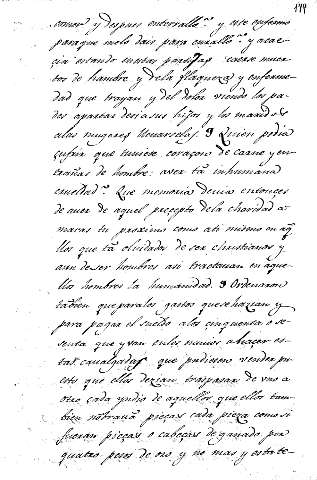 144
comer y despues enterrallo.s y este enfermo
paraque me lo dais para curallo.s y acae-
çia estando en estas partijas caerse muer-
tos de hambre y de la flaqueza y enferme-
dad que trayan y del dolor viendo los pa-
dres apartar de si a sus hijos y los maridos
a las mugeres llevarselos. Quien podia
çufrir que tuviese coraçon de carne y en-
trañas de hombre: aver tã inhumana
crueldad.s Que memoria devia entonces
de aver de aquel precepto de la charidad a-
maras tu proximo como ati mismo en aq̃-
llos que tã olvidados de ser christianos y
aun de ser hombres asi tractavan en aque-
llos hombres la humanidad. Ordenaron
tãbien que para los gastos que se hazian y
para pagar el sueldo a los cinquenta o se-
senta que yvan en los navios a hacer es-
tas cavalgadas que pudiesen vender pu
esto que ellos dezian, traspasar de uno a
otro cada yndio de aquellos, que ellos tam-
bien nõbravã pieças cada pieza como si
fueran pieças o cabeças de ganado por
quatro pesos de oro y no mas y esta te-